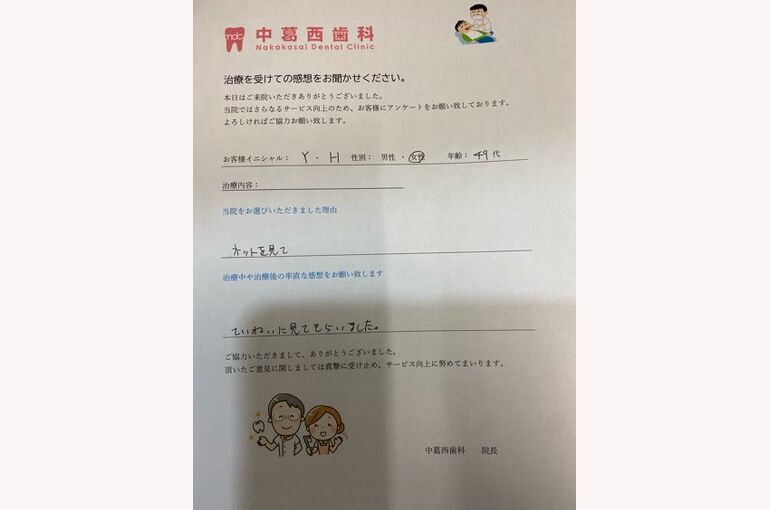 mdc 中葛西歯科
Nakakasai Dental Clinic
治療を受けての感想をお聞かせください。
本日はご来院いただきありがとうございました。
当院ではさらなるサービス向上のため、お客様にアンケートをお願い致しております。
よろしければご協力お願い致します。
お客様イニシャル： Y・H 性別： 男性 ・ 女性 年齢： 49 代
治療内容：
当院をお選びいただきました理由
ネットを見て
治療中や治療後の率直な感想をお願い致します
ていねいに見てもらいました。
ご協力いただきまして、ありがとうございました。
頂いたご意見に関しましては真摯に受け止め、サービス向上に努めてまいります。
中葛西歯科 院長